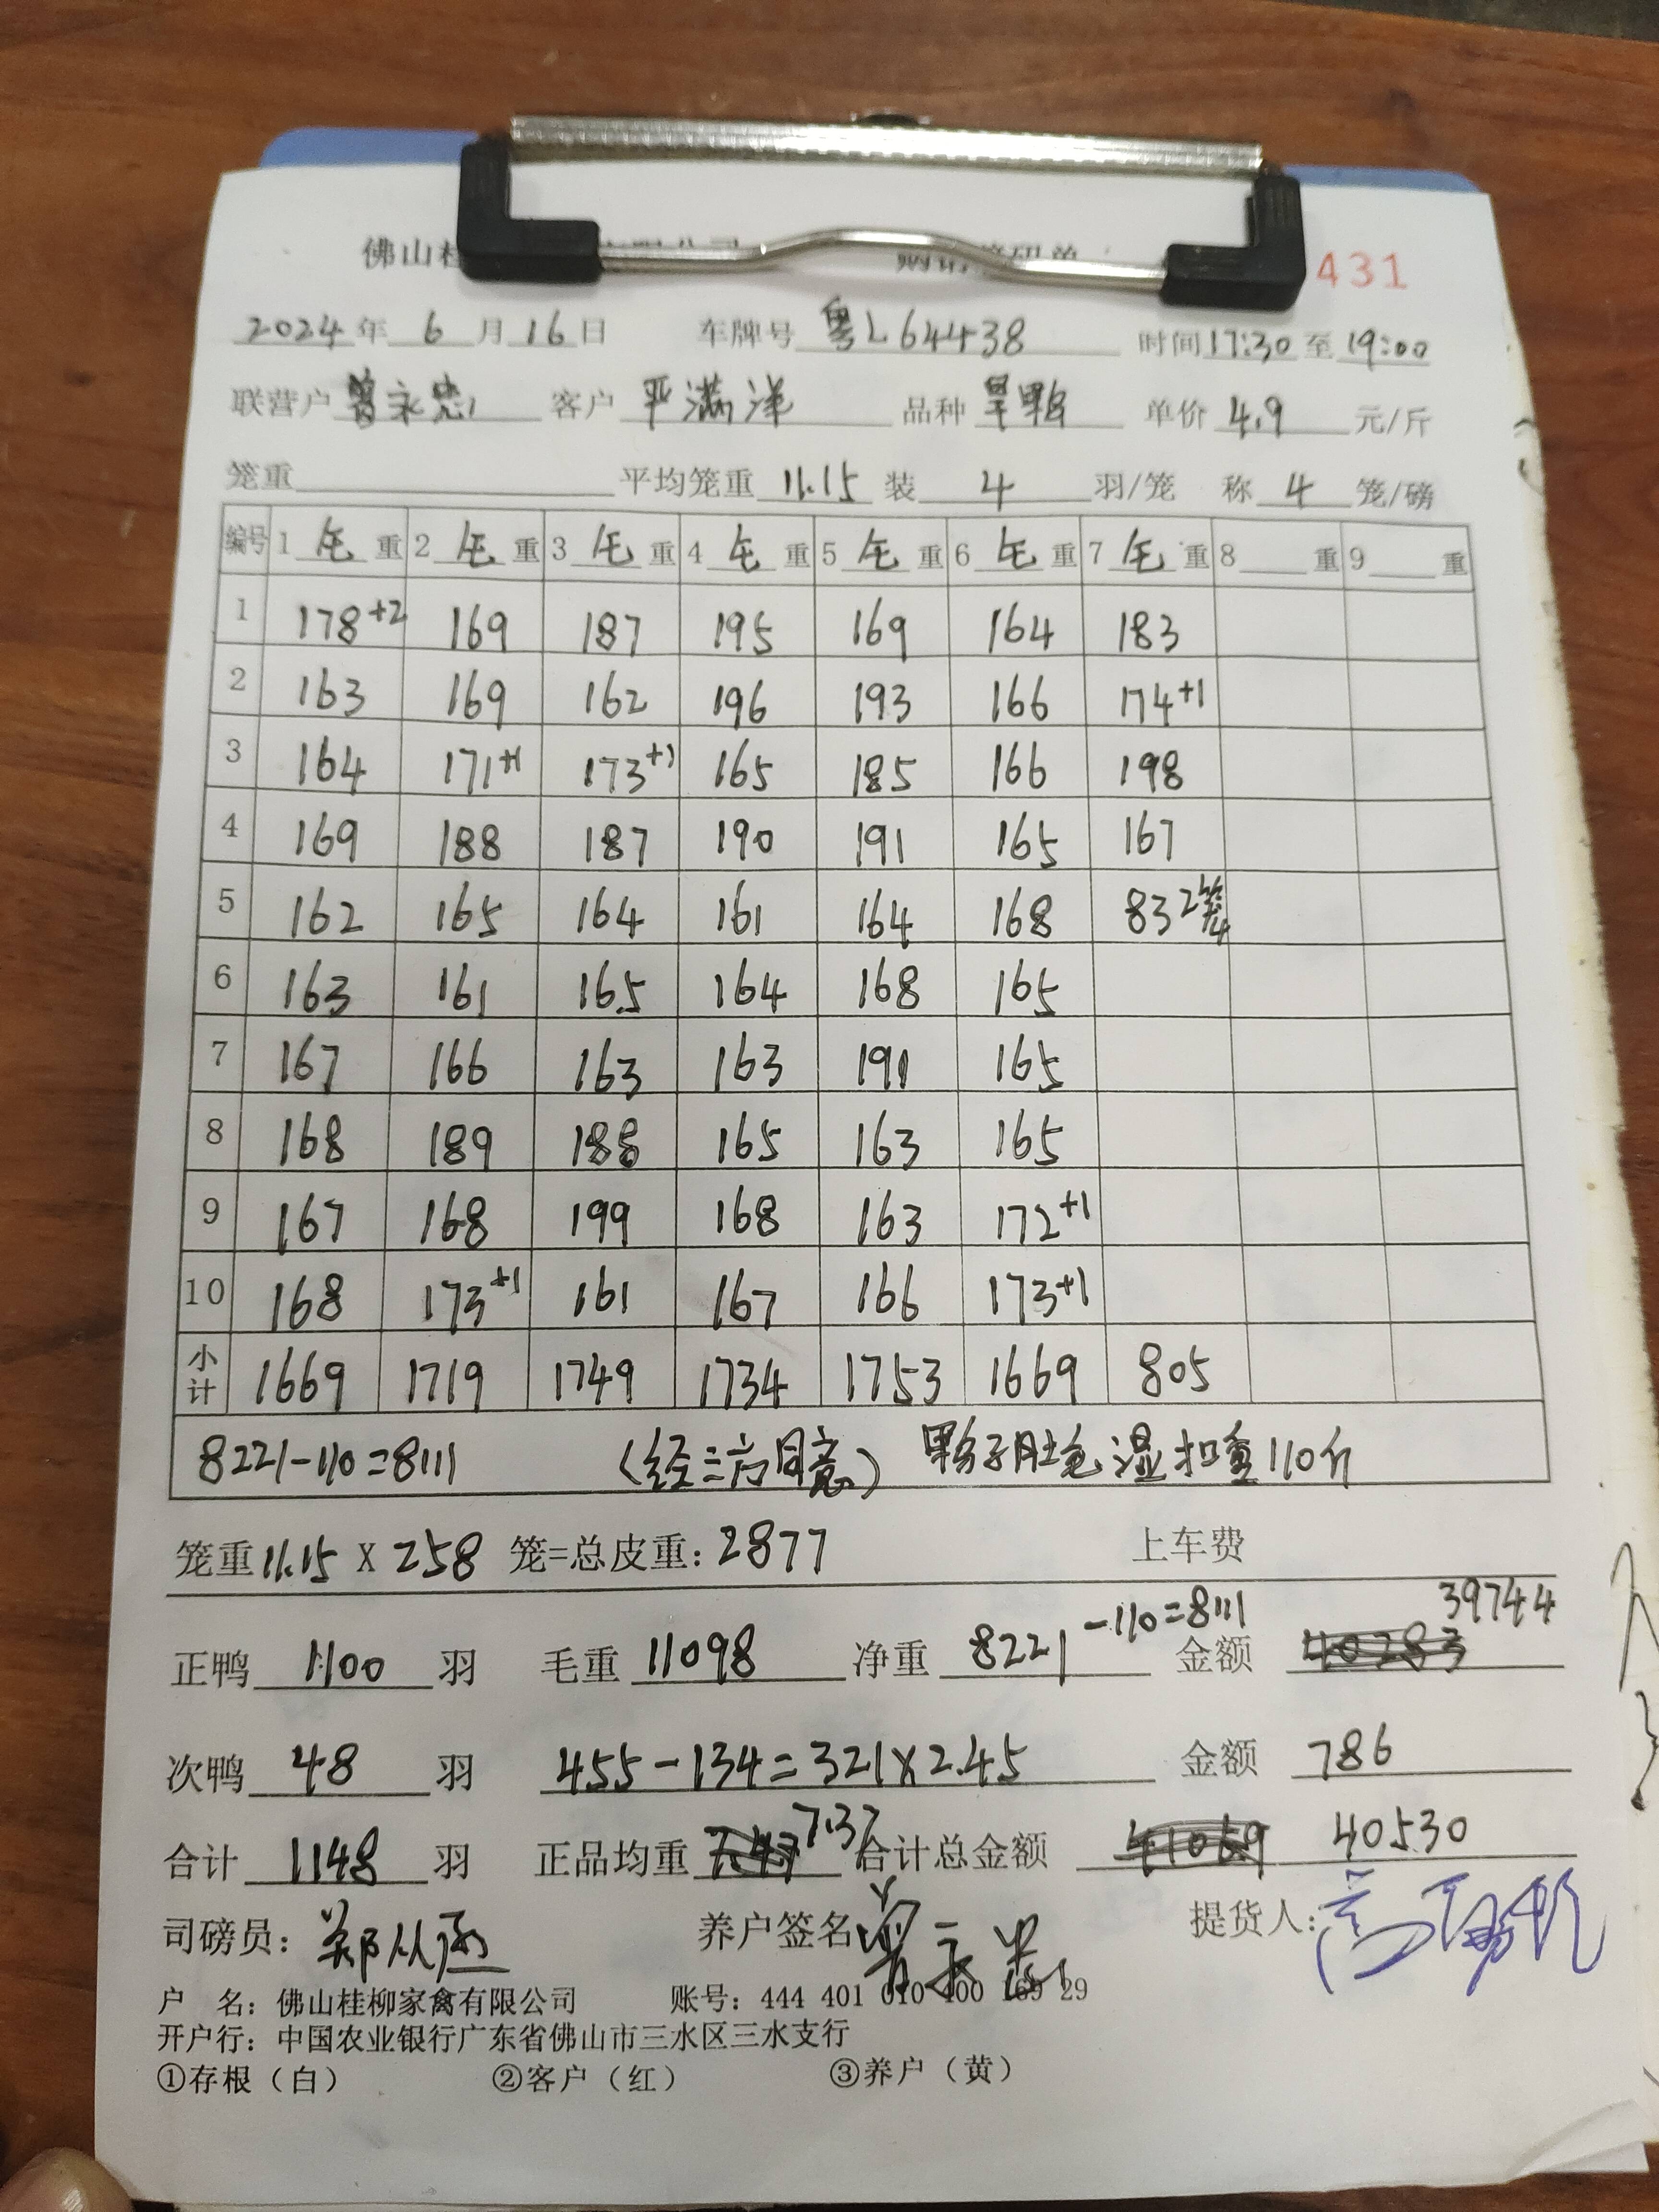 佛山桂
431
2024年 6 月 16 日 车牌号 粤L64438 时间 17:30 至 19:00
联营户 曾永忠 客户 严满洋 品种 旱鸭 单价 4.9 元/斤
笼重 平均笼重 11.15 装 4 羽/笼 称 4 笼/磅
编号 1 毛 重 2 毛 重 3 毛 重 4 毛 重 5 毛 重 6 毛 重 7 毛 重 8 重 9 重
1 178+2 169 187 195 169 164 183
2 163 169 162 196 193 166 174+1
3 164 171+1 173+1 165 185 166 198
4 169 188 187 190 191 165 167
5 162 165 164 161 164 168 83 2笼
6 163 161 165 164 168 165
7 167 166 163 163 191 165
8 168 189 188 165 163 165
9 167 168 199 168 163 172+1
10 168 173+1 161 167 166 173+1
小计 1669 1719 1749 1734 1753 1669 805
8221-110=8111 (经三方同意) 鸭子肚毛湿扣重110斤
笼重 11.15 X 258 笼=总皮重: 2877 上车费
正鸭 1100 羽 毛重 11098 净重 8221 -110=8111 金额 40283 39744
次鸭 48 羽 455-134=321×2.45 金额 786
合计 1148 羽 正品均重 7.47 7.37 合计总金额 41069 40530
司磅员: 郑从函 养户签名 曾永忠 提货人:
户 名: 佛山桂柳家禽有限公司 账号: 444 401 010 400 169 29
开户行: 中国农业银行广东省佛山市三水区三水支行
①存根(白) ②客户(红) ③养户(黄)